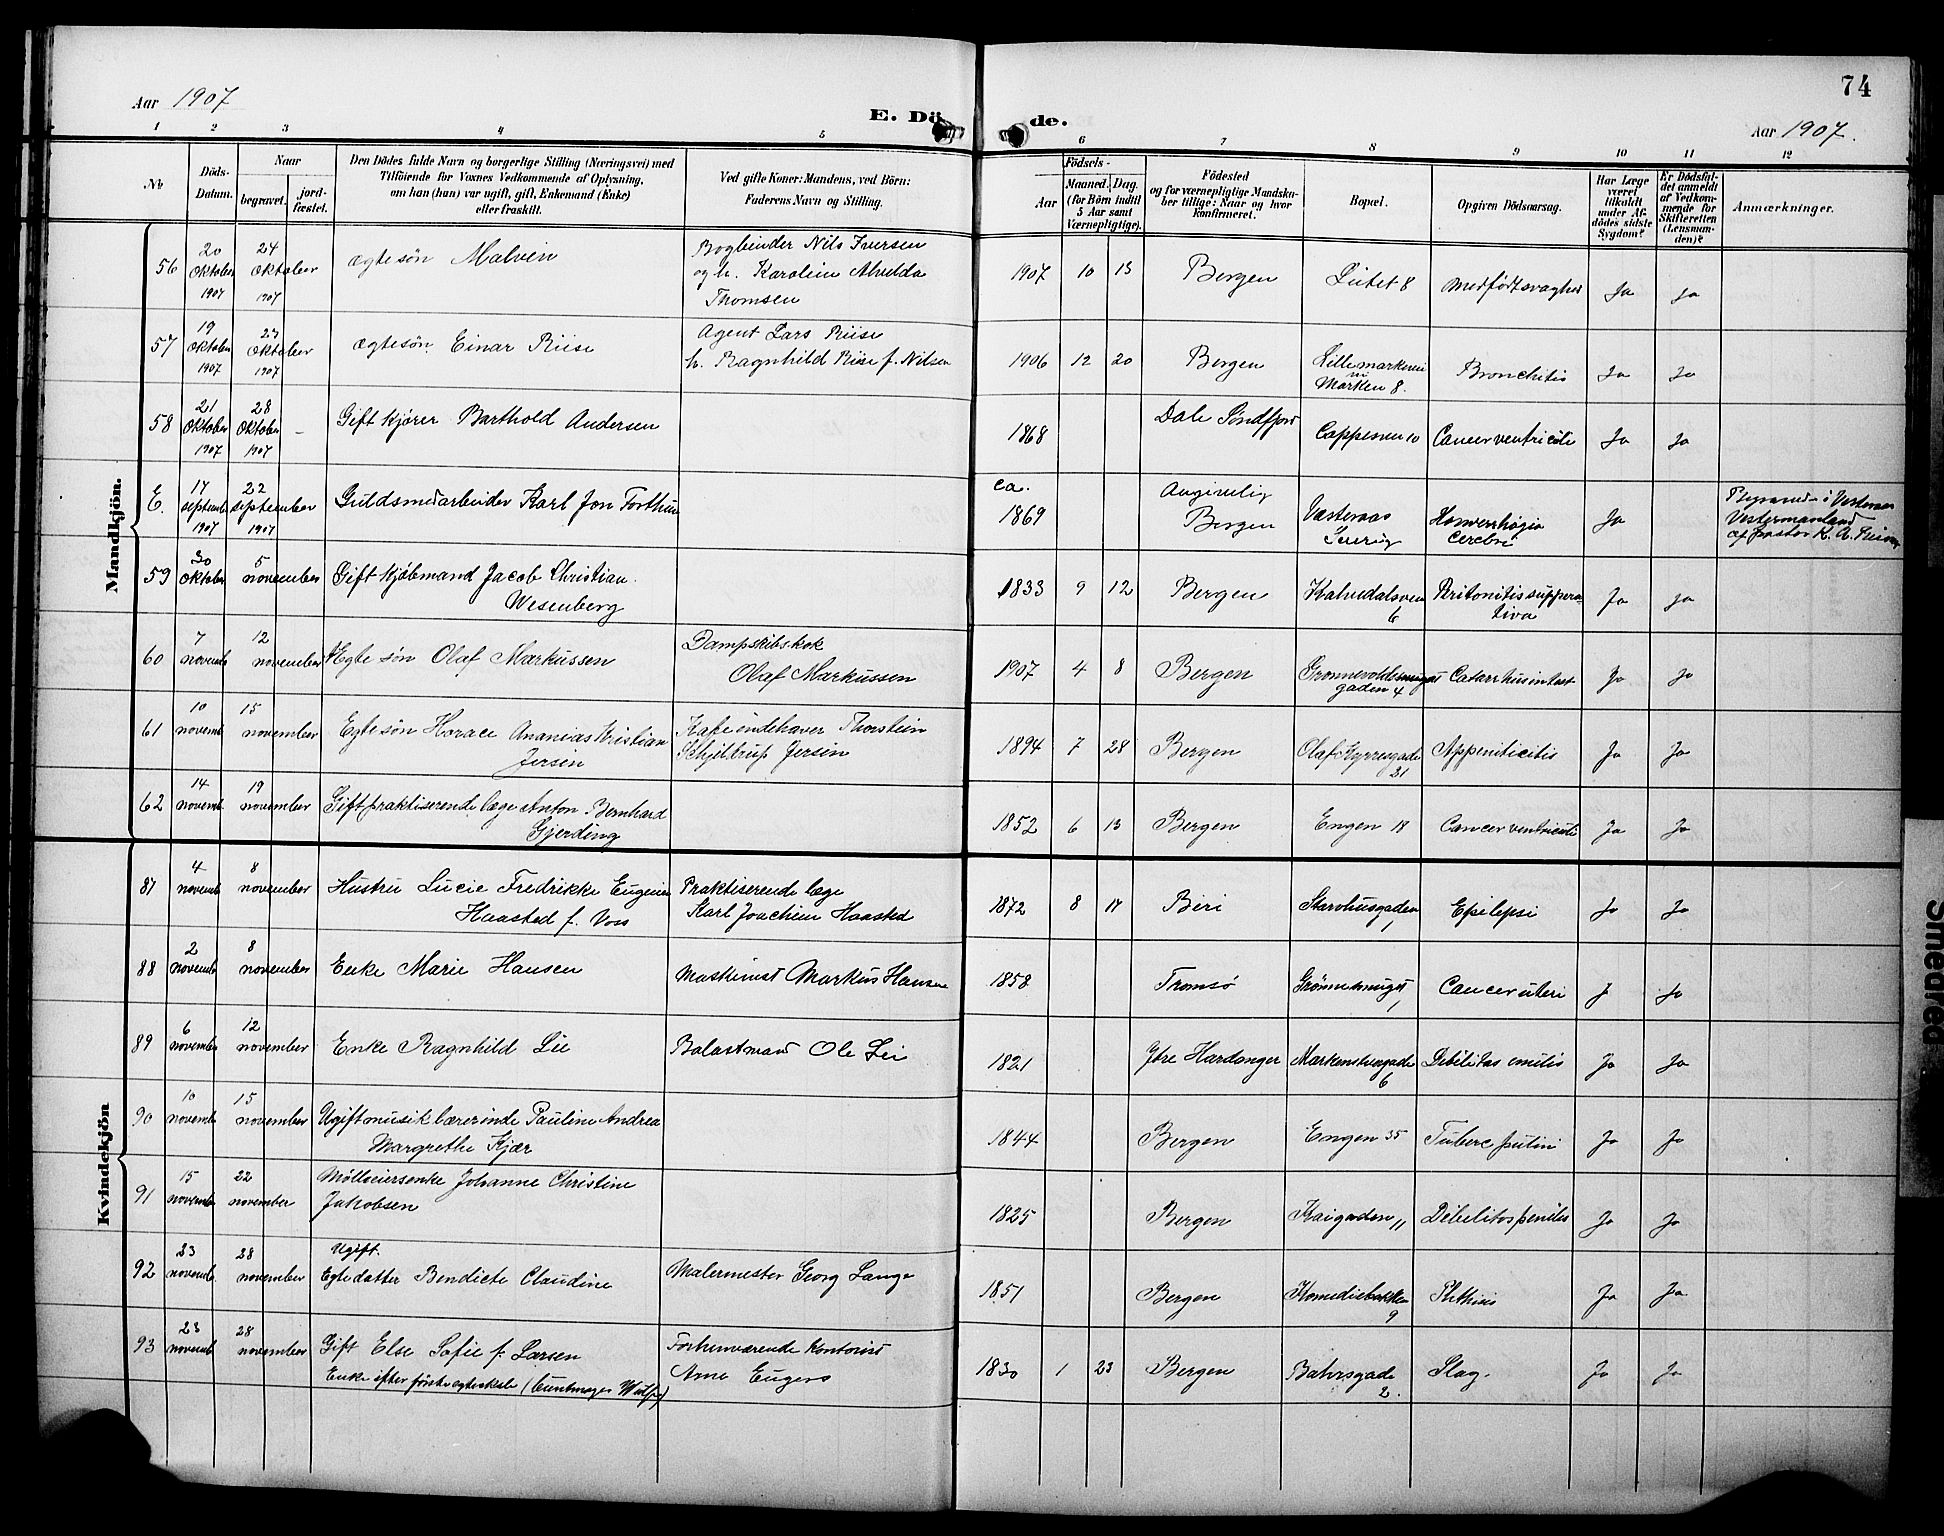 Aar 1907
E. Dö
de.
74
Aar 1907.
1 2 3 4 5 6 7 8 9 10 11 12
No
Döds-
Datum.
Naar
begravet.
jord-
fæstet.
Den Dödes fulde Navn og borgerlige Stilling (Næringsvei) med
Tilföiende for Voxnes Vedkommende af Oplysning,
om han (hun) var ugift, gift, Enkemand (Enke)
eller fraskilt.
Ved gifte Koner: Mandens, ved Börn:
Faderens Navn og Stilling.
Födsels-
Aar
Maaned.
Dag.
(for Börn indtil
5 Aar samt
Værnepligtige).
Födested
og for værnepligtige Mandskaber
tillige: Naar og hvor
konfirmeret.
Bopæl.
Opgiven Dödsaarsag.
Har Læge
været
tilkaldt
under Af-
dödes sidste
Sygdom?
Er Dödsfal-
det anmeldt
af Vedkom-
mende for
Skifteretten
(Lensman-
den)?
Anmærkninger.
Mandkjön.
56 20 oktober 1907 24 oktober 1907 Ægtesøn Malvin Bogbinder Nils Iversen
og h. Karolein Alvilda
Thomsen 1907 10 13 Bergen 8 medfødt svaghed Ja Ja
57 19 oktober 1907 23 oktober 1907 Ægtesøn Einar Riise Agent Lars Riise
h. Ragnhild Riise f. Nilsen 1906 12 20 Bergen Lille markevei
Marken 8. Bronchitis Ja Ja
58 21 oktober 1907 28 oktober 1907 – Gift kjører Barthold Andersen 1868 Dale Søndfjord Cappesmu 10 Cancer ventriculi Ja Ja
E. 17 septemb 1907 22 september 1907 Guldsmedarbeider Karl Jon Forthun ca. 1869 Angivelig
Bergen Västeraas
Sverig cerebri Ja i Vesteraas
Vestermanland
af pastor K. A.
59 30 oktober 5 november Gift kjøbmand Jacob Christian
Wesenberg 1833 9 12 Bergen Kalvedalsvei
6 Peritonitis suppura-
tiva Ja Ja
60 7 novemb 12 november Ægtesøn Olaf Markussen Dampskibskok
Olaf Markussen 1907 4 8 Bergen
gaden 4 Catarrhus intest Ja Ja
61 10 novemb. 15 november Egtesøn Horace Ananias Kristian
Jersin Kafeindehaver Thorstein
Schjeltrup Jersin 1894 7 28 Bergen Olaf Kyrresgade
21 Appeniticitis Ja Ja
62 14 novemb. 19 november Gift praktiserende læge Anton Bernhard
Gjerding 1852 6 13 Bergen Engen 18 Cancer ventriculi Ja Ja
Kvindekjön
87 4 novemb 8 november Hustru Lucie Fredrikke Eugenie
Haasted f. Voss Praktiserende læge
Karl Joachim Haasted 1872 8 17 Biri Starvhusgaden
1 Epilepsi Ja Ja
88 2 novemb 8 november Enke Marie Hansen Maskinist Markus Hansen 1858 Tromsø Grønnesmuget
1 Cancer uteri J Ja
89 6 novembe 12 november Enke Ragnhild Lie Balastmand Ole Lei 1821 Ytre Hardanger
6 Debilitas senilis Ja Ja
90 10 novemb. 15 november Ugift musiklærerinde Pauline Andrea
Margrethe Kjær 1844 Bergen Engen 35 Ja Ja
91 15 novemb. 22 november Mølleeiersenke Johanne Christine
Jakobsen 1825 Bergen Kaigaden 11 Debilitas senilis Ja Ja
92 23 novemb. 28 november Ugift.
Egtedatter Bendicte Claudine Malermester Georg Lange 1851 Bergen Komediebakken
9 Phthisis Ja Ja
93 23 novemb 28 november Gift Else Sofie f. Larsen
Enke efter første egteskab Forhenværende Kontorist
Arne Eugers 1830 1 23 Bergen Bahrsgade
2. Slag. Ja Ja
Smeared